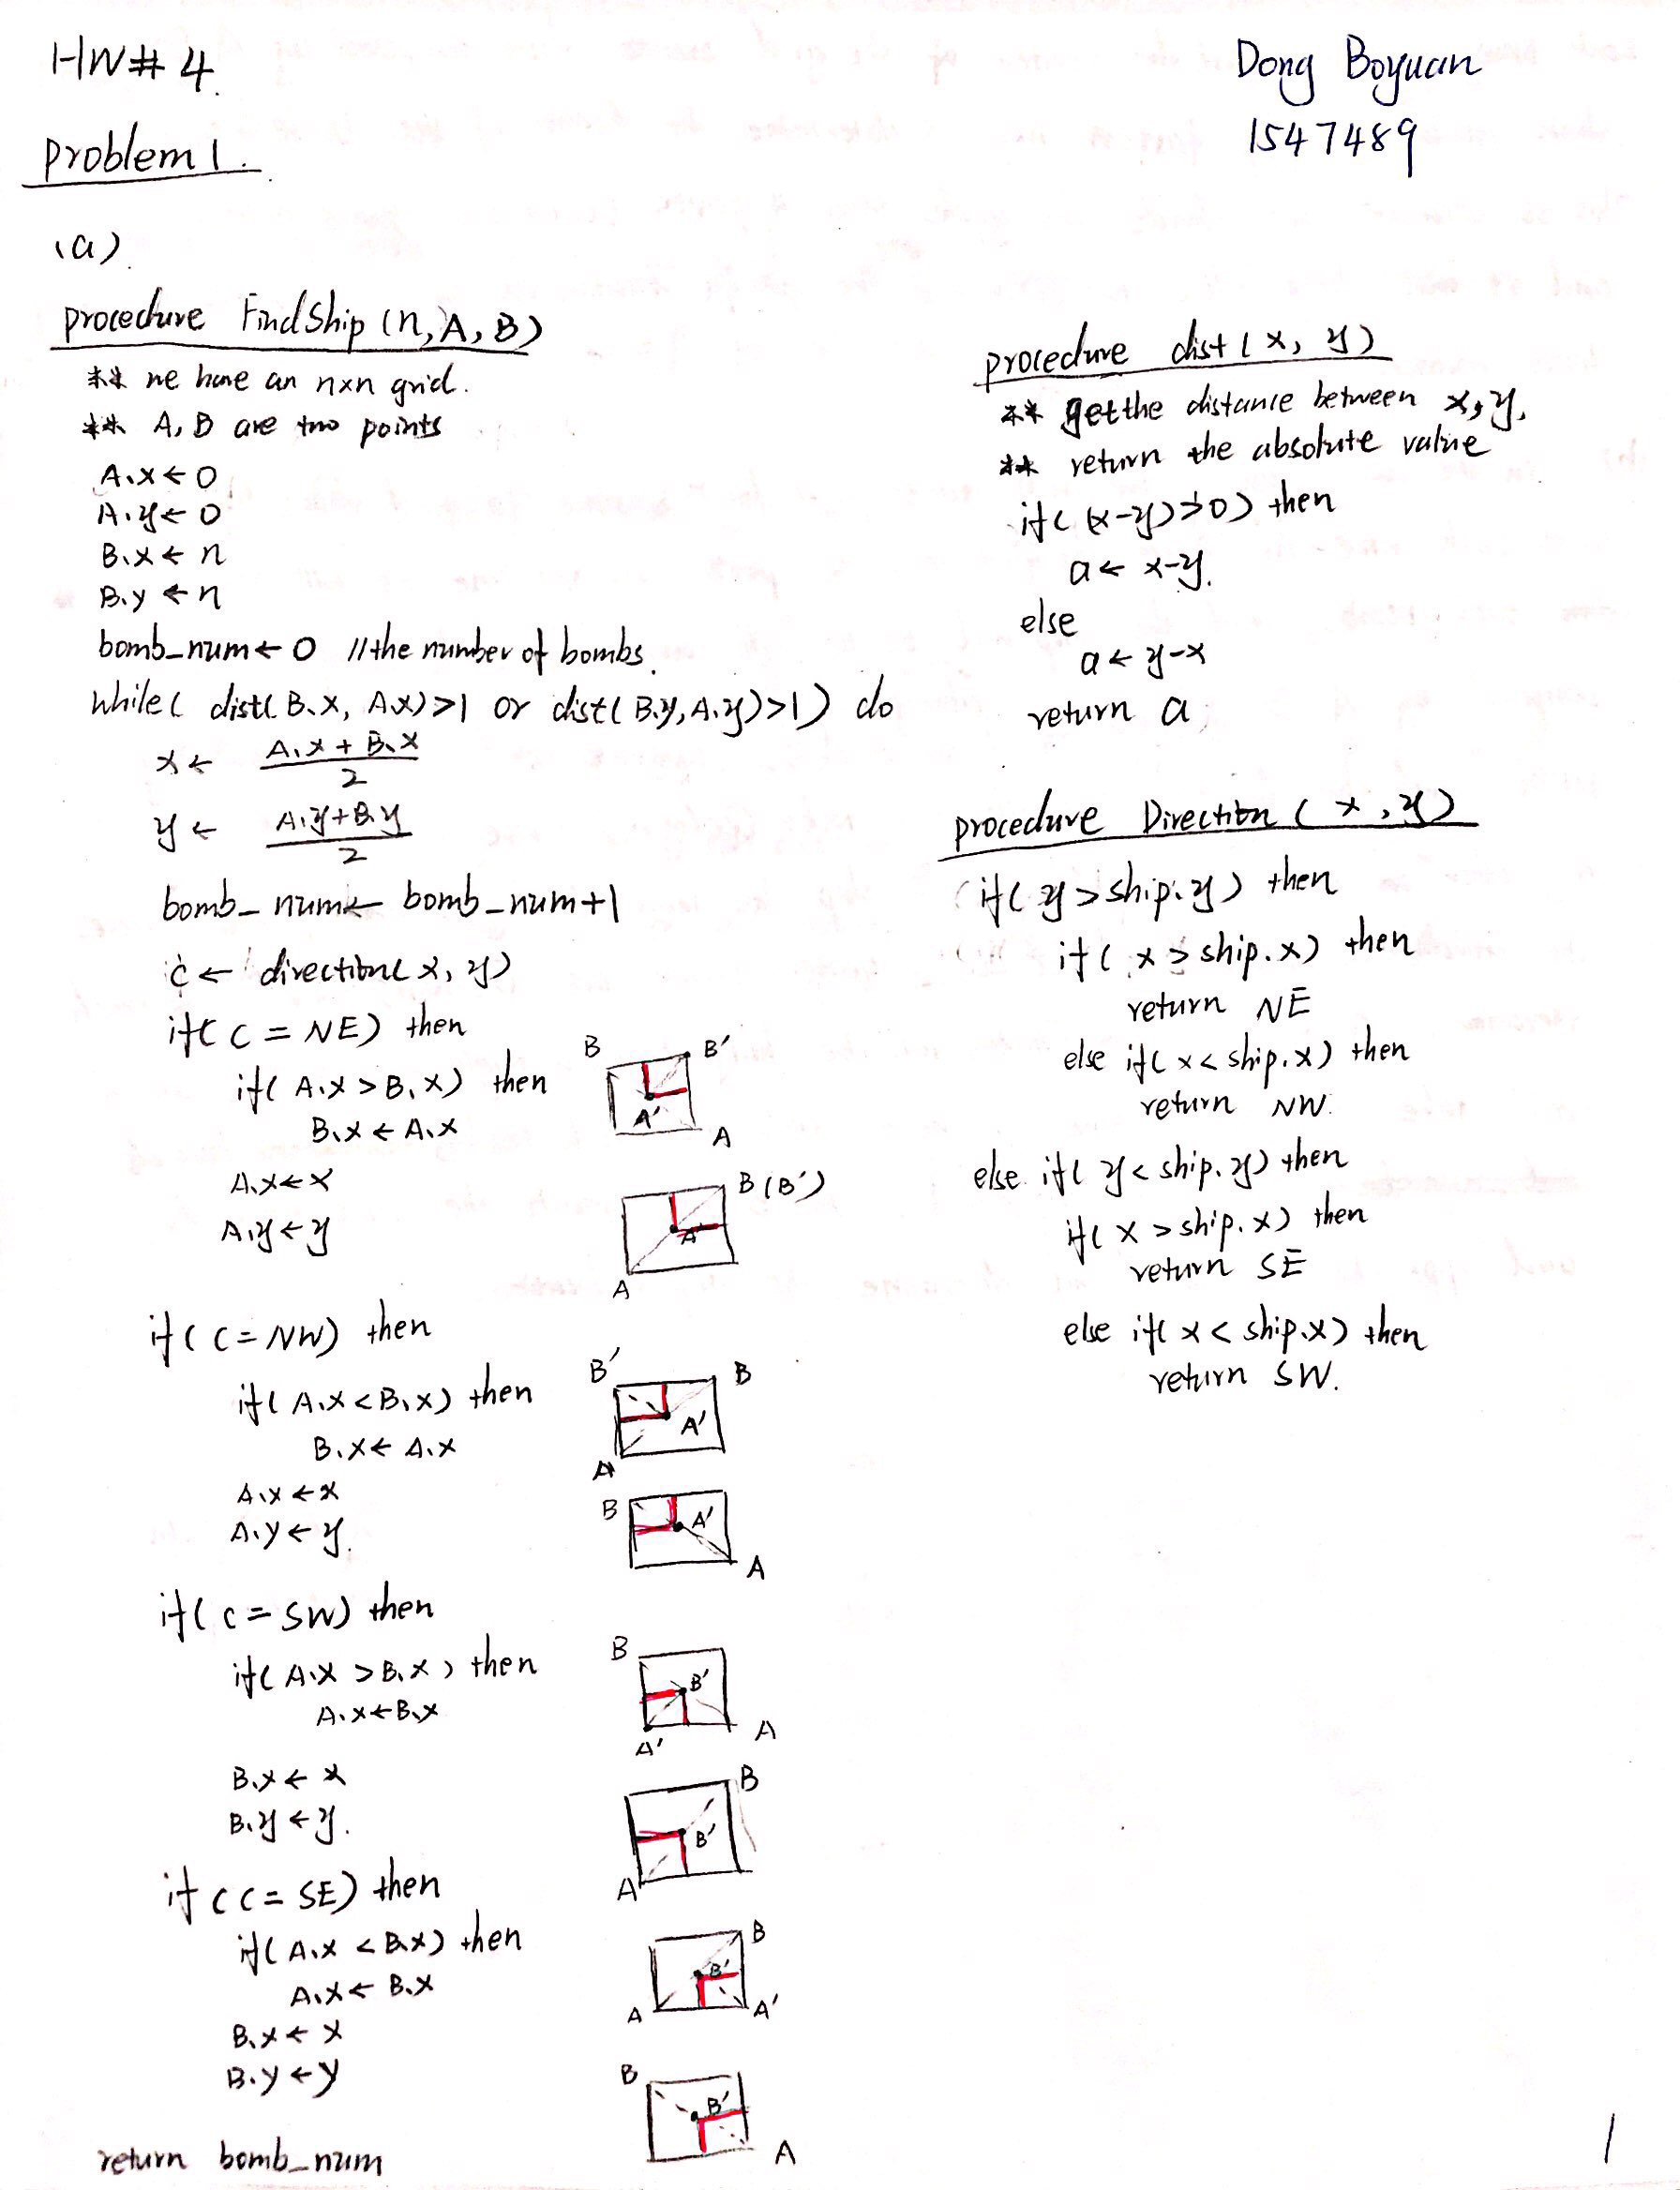 HW# 4.
Dong Boyuan
1547489
Problem 1.
(a).
procedure FindShip (n, A, B)
** we have an n×n grid.
** A, B are two points
A.x ← 0
A.y ← 0
B.x ← n
B.y ← n
bomb_num ← 0 // the number of bombs.
while( dist( B.x, A.x)>1 or dist( B.y, A.y)>1) do
x ← (A.x + B.x)/2
y ← (A.y + B.y)/2
bomb_num ← bomb_num+1
c ← direction( x, y)
if( C = NE) then
if( A.x > B.x) then
B.x ← A.x
A.x ← x
A.y ← y
B B'
A' A
B (B')
A'
A
if( C = NW) then
if( A.x < B.x) then
B.x ← A.x
A.x ← x
A.y ← y.
B' B
A'
A
B A'
A
if( c = SW) then
if( A.x > B.x) then
A.x ← B.x
B.x ← x
B.y ← y.
B
B'
A' A
B
B'
A
if( C = SE) then
if( A.x < B.x) then
A.x ← B.x
B.x ← x
B.y ← y
B
B'
A A'
B
B'
A
return bomb_num
procedure dist ( x, y)
** get the distance between x, y,
** return the absolute value
if( (x-y)>0) then
a ← x-y.
else
a ← y-x
return a;
procedure Direction ( x, y)
if( y > ship.y) then
if( x > ship.x) then
return NE
else if( x < ship.x) then
return NW.
else if( y < ship.y) then
if( x > ship.x) then
return SE
else if( x < ship.x) then
return SW.
1